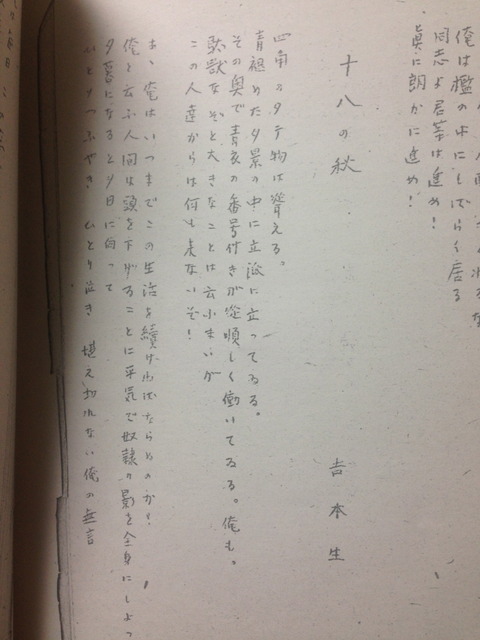 俺は檻の中にしばらく居る
同志よ君等は進め！
眞に朗かに進め！
十八の秋
吉本生
四角いタテ物は聳える。
青褪めた夕景の中に立派に立ってゐる。
その奥で青衣の番号付きが従順しく働いてゐる。俺も。
獣などと大きなことは云ふまいが
この人達からは何も来ないぞ！
あゝ俺はいつまでこの生活を續けねばならぬのか！
俺と云ふ人間は頭を下げることに平気で奴隷の影を全身にしょつ
夕暮になると夕日に向って
ひとりつぶやき ひとり泣き 堪え切れない俺の無言